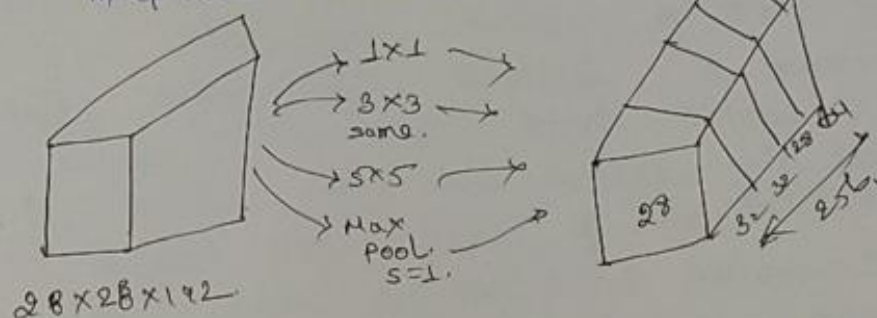 1×1
3×3
same.
5×5
Max
Pool.
S=1.
28×28×192
28
32
32
128
64
256.